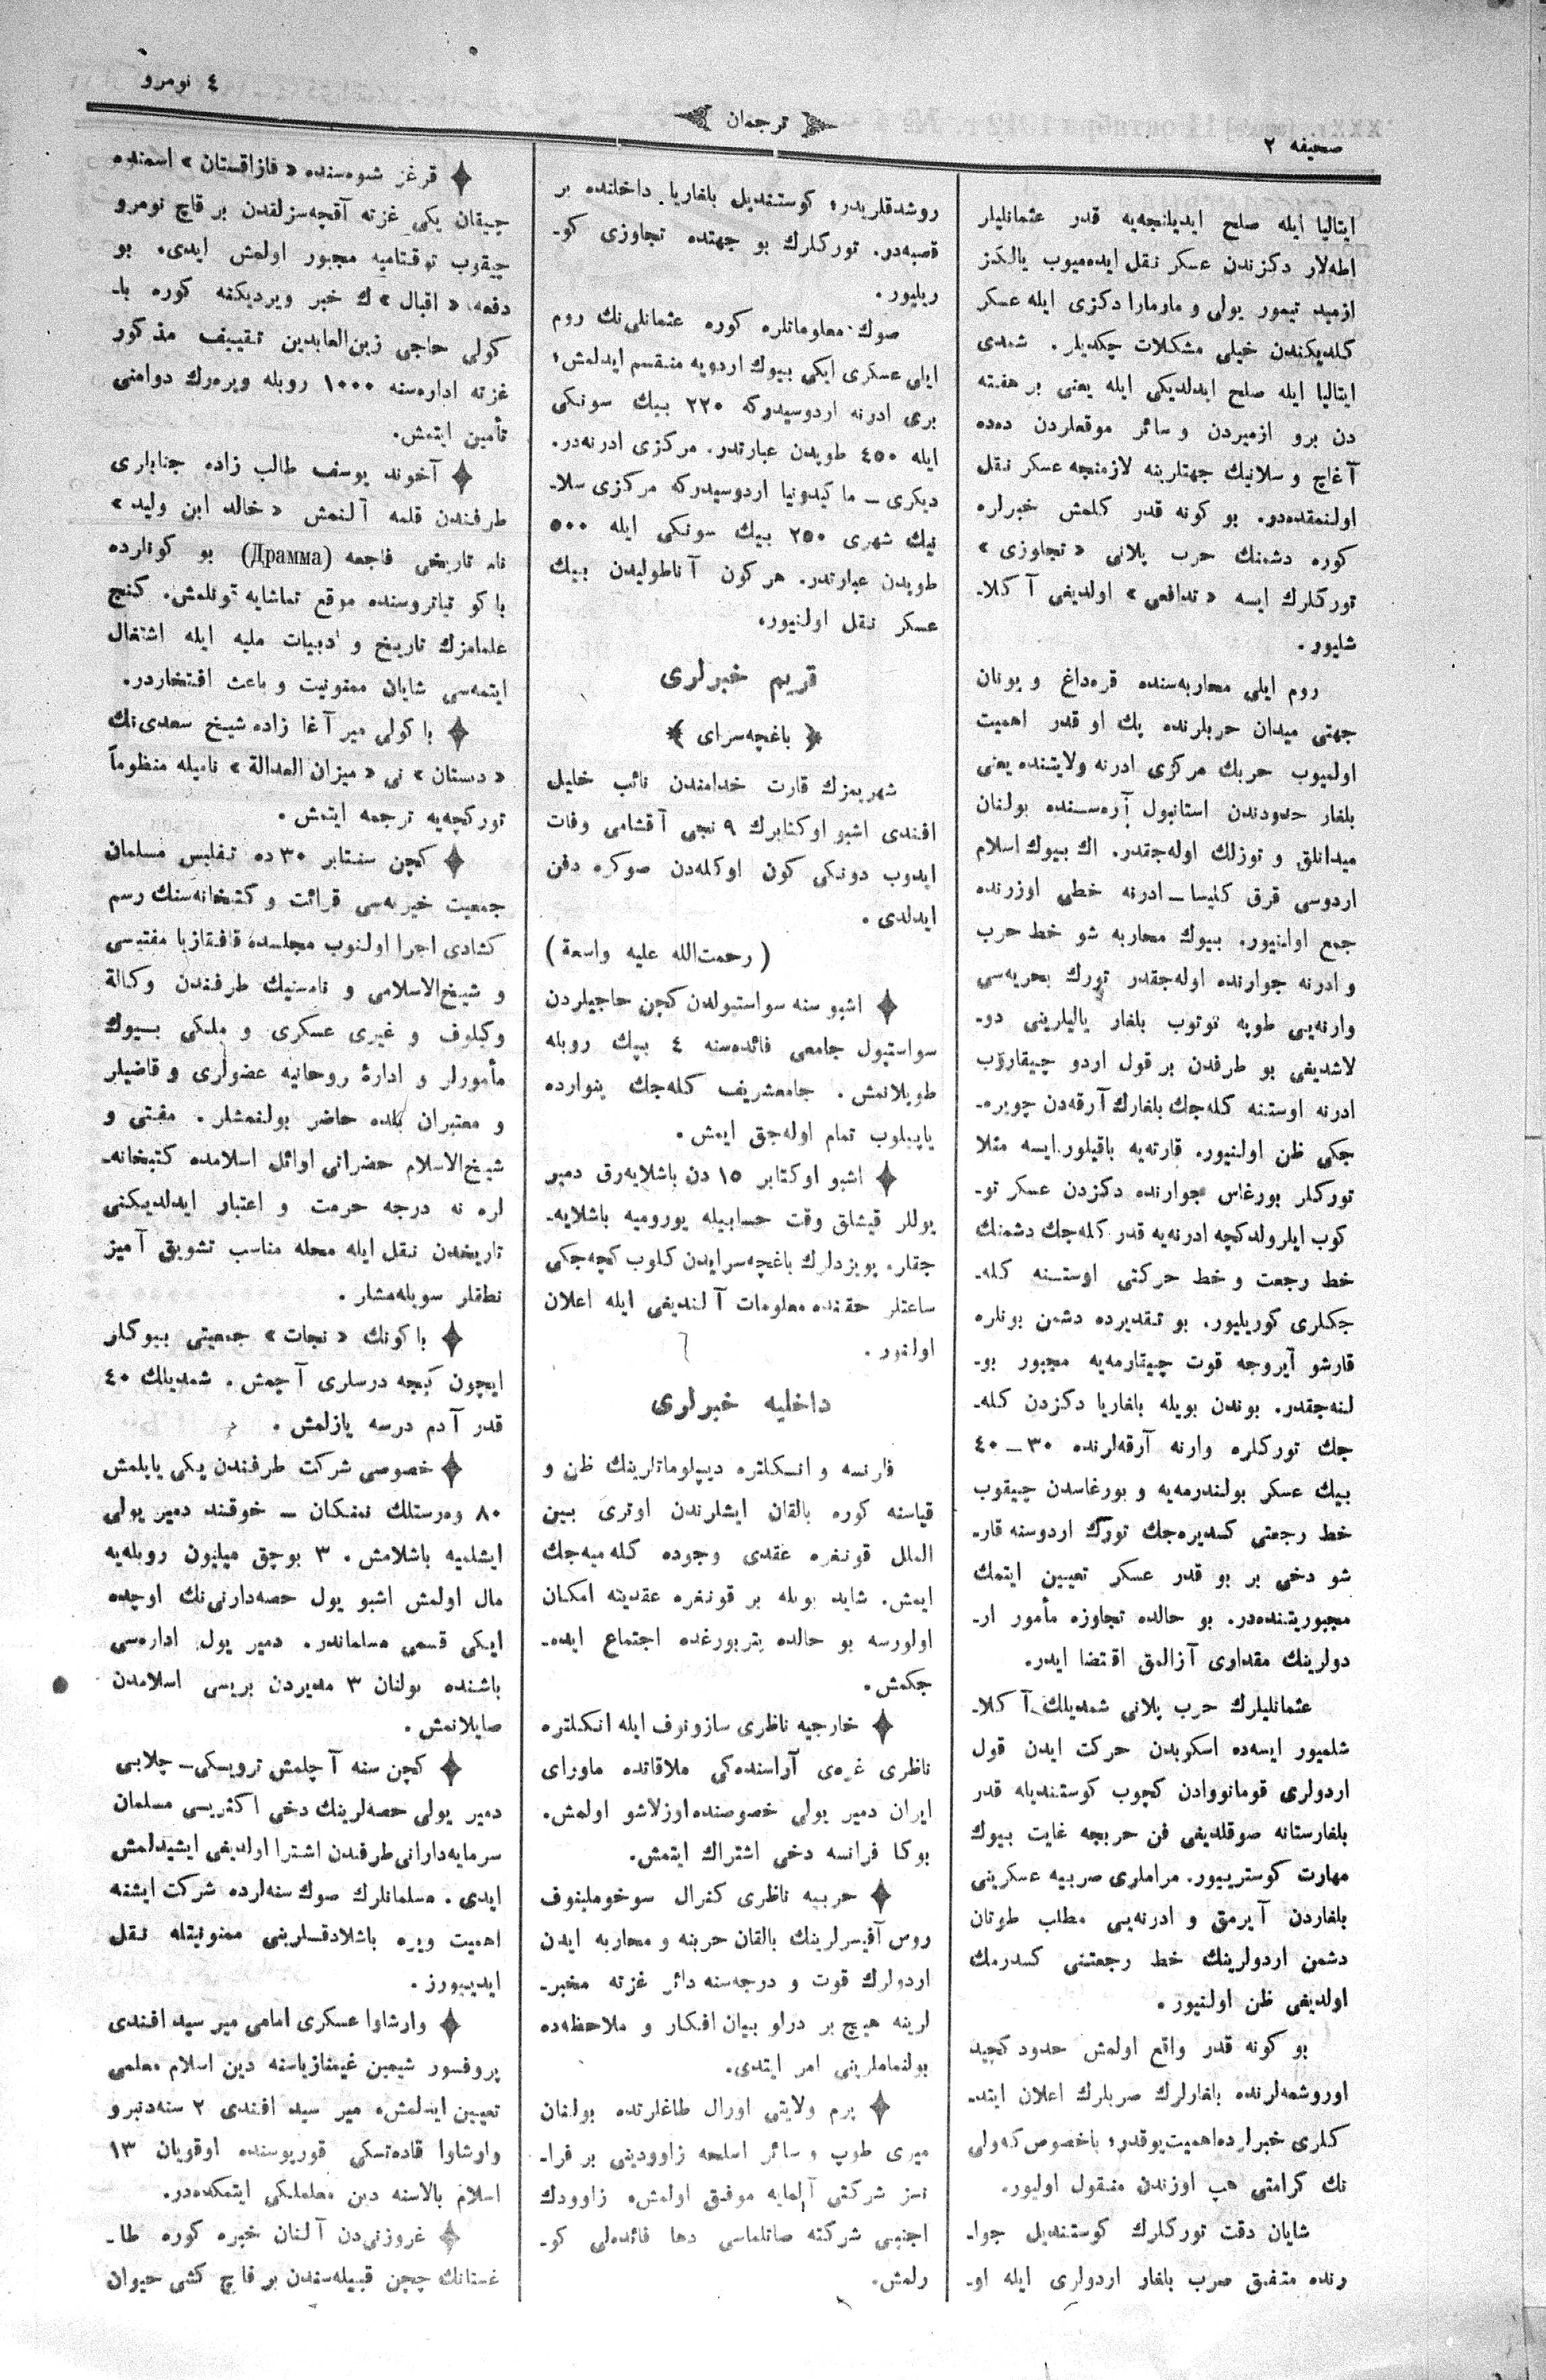 صحیفه ۲
ترجمان
٤ نومرو
ایتالیا ایله صلح ایدیلنجه‌یه قدر عثمانلیلر
اطه‌لار دكزندن عسكر نقل ایده‌میوب یالكز
ازمید تیمور یولی و مارمارا دكزی ایله عسكر
كلدیكندن خیلی مشكلات چكدیلر. شمدی
ایتالیا ایله صلح ایدلدیكی ایله یعنی بر هفته
دن برو ازمیردن و سائر موقعلردن دده
آغاچ و سلانیك جهتلرینه لازمنجه عسكر نقل
اولنمقده‌در. بو كونه قدر كلمش خبرلره
كوره دشمنك حرب پلانی «تجاوزی»
توركلرك ایسه «تدافعی» اولدیغی آكلا-
شلیور.
روم ایلی محاربه‌سنده قره‌داغ و یونان
جهتی میدان حربلرنده پك او قدر اهمیت
اولمیوب حربك مركزی ادرنه ولایتنده یعنی
بلغار حدودندن استانبول آره‌سنده بولنان
میدانلق و توزلك اوله‌جقدر. اك بیوك اسلام
اردوسی قرق كلیسا-ادرنه خطی اوزرنده
جمع اولنیور. بیوك محاربه شو خط حرب
و ادرنه جوارنده اوله‌جقدر تورك بحریه‌سی
وارنه‌یی طوپه توتوب بلغار یالیلرینی دو-
لاشدیغی بو طرفدن بر قول اردو چیقاروب
ادرنه اوستنه كله‌جك بلغارك آرقه‌دن چویره-
جكی ظن اولنیور. قارته‌یه باقیلور ایسه مثلا
توركلر بورغاس جوارنده دكزدن عسكر تو-
كوب ایلرولدكچه ادرنه‌یه قدر كله‌جك دشمنك
خط رجعت و خط حركتی اوستنه كله-
جكلری كوریلیور. بو تقدیرده دشمن بونلره
قارشو آیروجه قوت چیقارمه‌یه مجبور بو-
لنه‌جقدر. بوندن بویله بلغاریا دكزدن كله-
جك توركلره وارنه آرقه‌لرنده ۳۰-٤۰
بیك عسكر بولندرمه‌یه و بورغاسدن چیقوب
خط رجعتی كسدیره‌جك تورك اردوسنه قار-
شو دخی بر بو قدر عسكر تعیین ایتمك
مجبوریتنده‌در. بو حالده تجاوزه مأمور ار-
دولرینك مقداری آزالمق اقتضا ایدر.
عثمانلیلرك حرب پلانی شمدیلك آكلا-
شلمیور ایسه‌ده اسكوبدن حركت ایدن قول
اردولری قومانووادن كچوب كوستندیله قدر
بلغارستانه صوقلدیغی فن حربجه غایت بیوك
مهارت كوستریور. مراملری صربیه عسكرینی
بلغاردن آیرمق و ادرنه‌یی مطلب طوتان
دشمن اردولرینك خط رجعتنی كسدرمك
اولدیغی ظن اولنیور.
بو كونه قدر واقع اولمش حدود كچید
اوروشمه‌لرنده بلغارلرك صربلرك اعلان ایتد-
كلری خبرلرده اهمیت یوقدر؛ باخصوص كه‌ولی
نك كرامتی هپ اوزندن منقول اولیور.
شایان دقت توركلرك كوستندیل جوا-
رنده متفق صرب بلغار اردولری ایله او-
روشدقلریدر؛ كوستندیل بلغاریا داخلنده بر
قصبه‌در. توركلرك بو جهتده تجاوزی كو-
ریلیور.
صوك معلوماتلره كوره عثمانلی‌نك روم
ایلی عسكری ایكی بیوك اردویه منقسم ایدلمش؛
بری ادرنه اردوسیدركه ۲۲۰ بیك سونكی
ایله ٤٥۰ طوپدن عبارتدر. مركزی ادرنه‌در.
دیكری - ماكیدونیا اردوسیدركه مركزی سلا-
نیك شهری ۲٥۰ بیك سونكی ایله ٥۰۰
طوپدن عبارتدر. هركون آناطولیدن بیك
عسكر نقل اولنیور.
قریم خبرلری
﴿ باغچه‌سرای ﴾
شهریمزك قارت خدامندن نائب خلیل
افندی اشبو اوكتابرك ۹ نجی آقشامی وفات
ایدوب دونكی كون اوكله‌دن صوكره دفن
ایدلدی.
(رحمت‌الله علیه واسعة)
✦ اشبو سنه سواستپولدن كچن حاجیلردن
سواستپول جامعی فائده‌سنه ٤ بیك روبله
طوپلانمش. جامعشریف كله‌جك ینوارده
یاپیلوب تمام اوله‌جق ایمش.
✦ اشبو اوكتابر ۱٥ دن باشلایه‌رق دمیر
یوللر قیشلق وقت حسابیله یورومیه باشلایه-
جقلر. پویزدلرك باغچه‌سرایدن كلوب كچه‌جكی
ساعتلر حقنده معلومات آلندیغی ایله اعلان
اولنور.
داخلیه خبرلری
فارنسه و انكلتره دیپلوماتلرینك ظن و
قیاسنه كوره بالقان ایشلرندن اوتری بین
الملل قونغره عقدی وجوده كله‌میه‌جك
ایمش. شاید بویله بر قونغره عقدینه امكان
اولورسه بو حالده پتربورغده اجتماع ایده-
جكمش.
✦ خارجیه ناظری سازونوف ایله انكلتره
ناظری غره‌ی آراسنده‌كی ملاقاتده ماورای
ایران دمیر یولی خصوصنده اوزلاشو اولمش.
بوكا فرانسه دخی اشتراك ایتمش.
✦ حربیه ناظری كنرال سوخوملینوف
روس آفیسرلرینك بالقان حربنه و محاربه ایدن
اردولرك قوت و درجه‌سنه دائر غزته مخبر-
لرینه هیچ بر درلو بیان افكار و ملاحظه‌ده
بولنماملرینی امر ایتدی.
✦ پرم ولایتی اورال طاغلرنده بولنان
میری طوپ و سائر اسلحه زاوودینی بر فرا-
نسز شركتی آلمایه موفق اولمش. زاوودك
اجنبی شركته صاتلماسی دها فائده‌لی كو-
رلمش.
✦ قرغز شیوه‌سنده «قازاقستان» اسمنده
چیقان یكی غزته آقچه‌سزلقدن بر قاچ نومرو
چیقوب توقتامیه مجبور اولمش ایدی. بو
دفعه «اقبال»ك خبر ویردیكنه كوره با-
كولی حاجی زین‌العابدین تقییف مذكور
غزته اداره‌سنه ۱۰۰۰ روبله ویره‌رك دوامنی
تأمین ایتمش.
✦ آخوند یوسف طالب زاده جنابلری
طرفندن قلمه آلنمش «خالد ابن ولید»
نام تاریخی فاجعه (Драмма) بو كونلرده
باكو تیاتروسنده موقع تماشایه قونلمش. كنج
علمامزك تاریخ و ادبیات ملیه ایله اشتغال
ایتمه‌سی شایان ممنونیت و باعث افتخاردر.
✦ باكولی میر آغا زاده شیخ سعدی‌نك
«دستان» نی «میزان العدالة» نامیله منظوماً
توركچه‌یه ترجمه ایتمش.
✦ كچن سنتابر ۳۰ ده تفلیس مسلمان
جمعیت خیریه‌سی قرائت و كتبخانه‌سنك رسم
كشادی اجرا اولنوب مجلسده قافقازیا مفتیسی
و شیخ‌الاسلامی و نامسنیك طرفندن وكالة
وكیلوف و غیری عسكری و ملكی بیوك
مأمورلر و ادارهٔ روحانیه عضولری و قاضیلر
و معتبران بلده حاضر بولنمشلر. مفتی و
شیخ‌الاسلام حضراتی اوائل اسلامده كتبخانه-
لره نه درجه حرمت و اعتبار ایدلدیكنی
تاریخدن نقل ایله محله مناسب تشویق آمیز
نطقلر سویله‌مشلر.
✦ باكونك «نجات» جمعیتی بیوكلر
ایچون كیجه درسلری آچمش. شمدیلك ٤۰
قدر آدم درسه یازلمش.
✦ خصوصی شركت طرفندن یكی یاپلمش
۸۰ وه‌رستلك نمنكان - خوقند دمیر یولی
ایشلمیه باشلامش. ۳ بوچق میلیون روبله‌یه
مال اولمش اشبو یول حصه‌دارنی‌نك اوچده
ایكی قسمی مسلماندر. دمیر یول اداره‌سی
باشنده بولنان ۳ مدیردن بریسی اسلامدن
صایلانمش.
✦ كچن سنه آچلمش ترویسكی-چلابی
دمیر یولی حصه‌لرینك دخی اكثریسی مسلمان
سرمایه‌دارانی طرفندن اشترا اولدیغی ایشیدلمش
ایدی. مسلمانلرك صوك سنه‌لرده شركت ایشنه
اهمیت ویره باشلادقلرینی ممنونیتله نقل
ایدییورز.
✦ وارشاوا عسكری امامی میر سید افندی
پروفسور شیمین غیمنازیاسنه دین اسلام معلمی
تعیین ایدلمش. میر سید افندی ۲ سنه‌دنبرو
وارشاوا قاده‌تسكی قورپوسنده اوقویان ۱۳
اسلام بالاسنه دین معلملكی ایتمكده‌در.
✦ غروزنی‌دن آلنان خبره كوره طا-
غستانك چچن قبیله‌سندن بر قاچ كشی حیوان